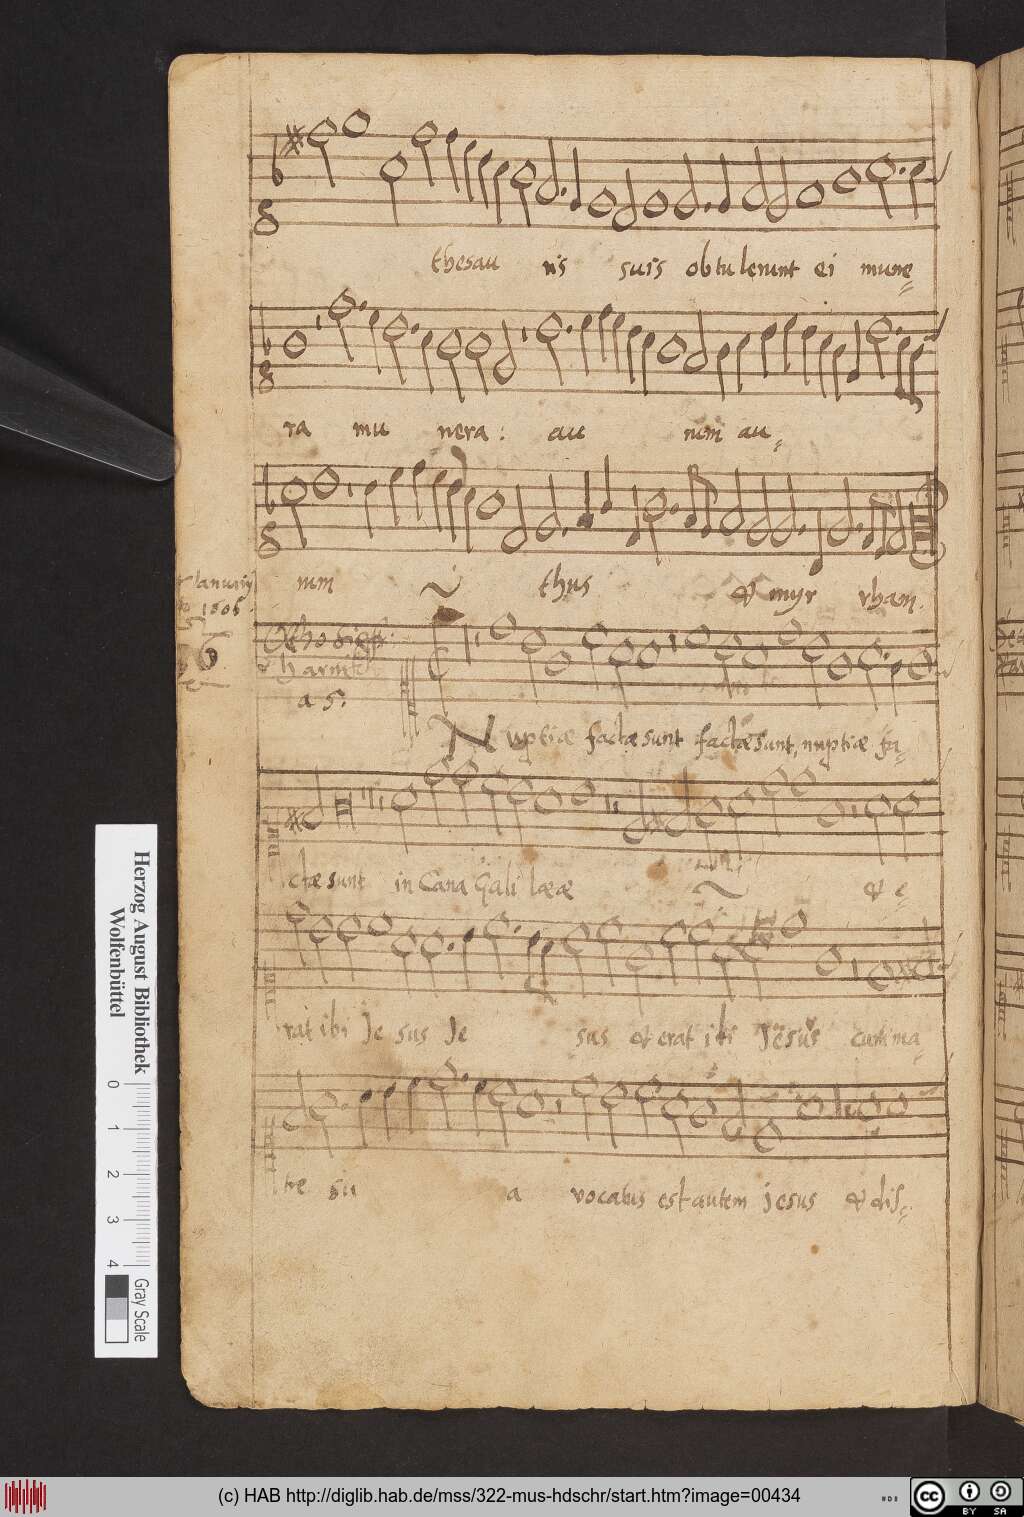 thesau ris suis obtulerunt ei mune
ra mu nera: au rum au
rum thus & myr rham.
January
1605.
6
a 5.
Nuptiæ factæ sunt factæ sunt, nuptiæ fa
ctæ sunt in Cana Gali lææ & e
rat ibi Je sus Je sus et erat ibi Jesus cum ma
tre su a vocatus est autem Jesus & dis
Herzog August Bibliothek
Wolfenbüttel
0 1 2 3 4
Gray Scale
(c) HAB http://diglib.hab.de/mss/322-mus-hdschr/start.htm?image=00434
cc BY SA